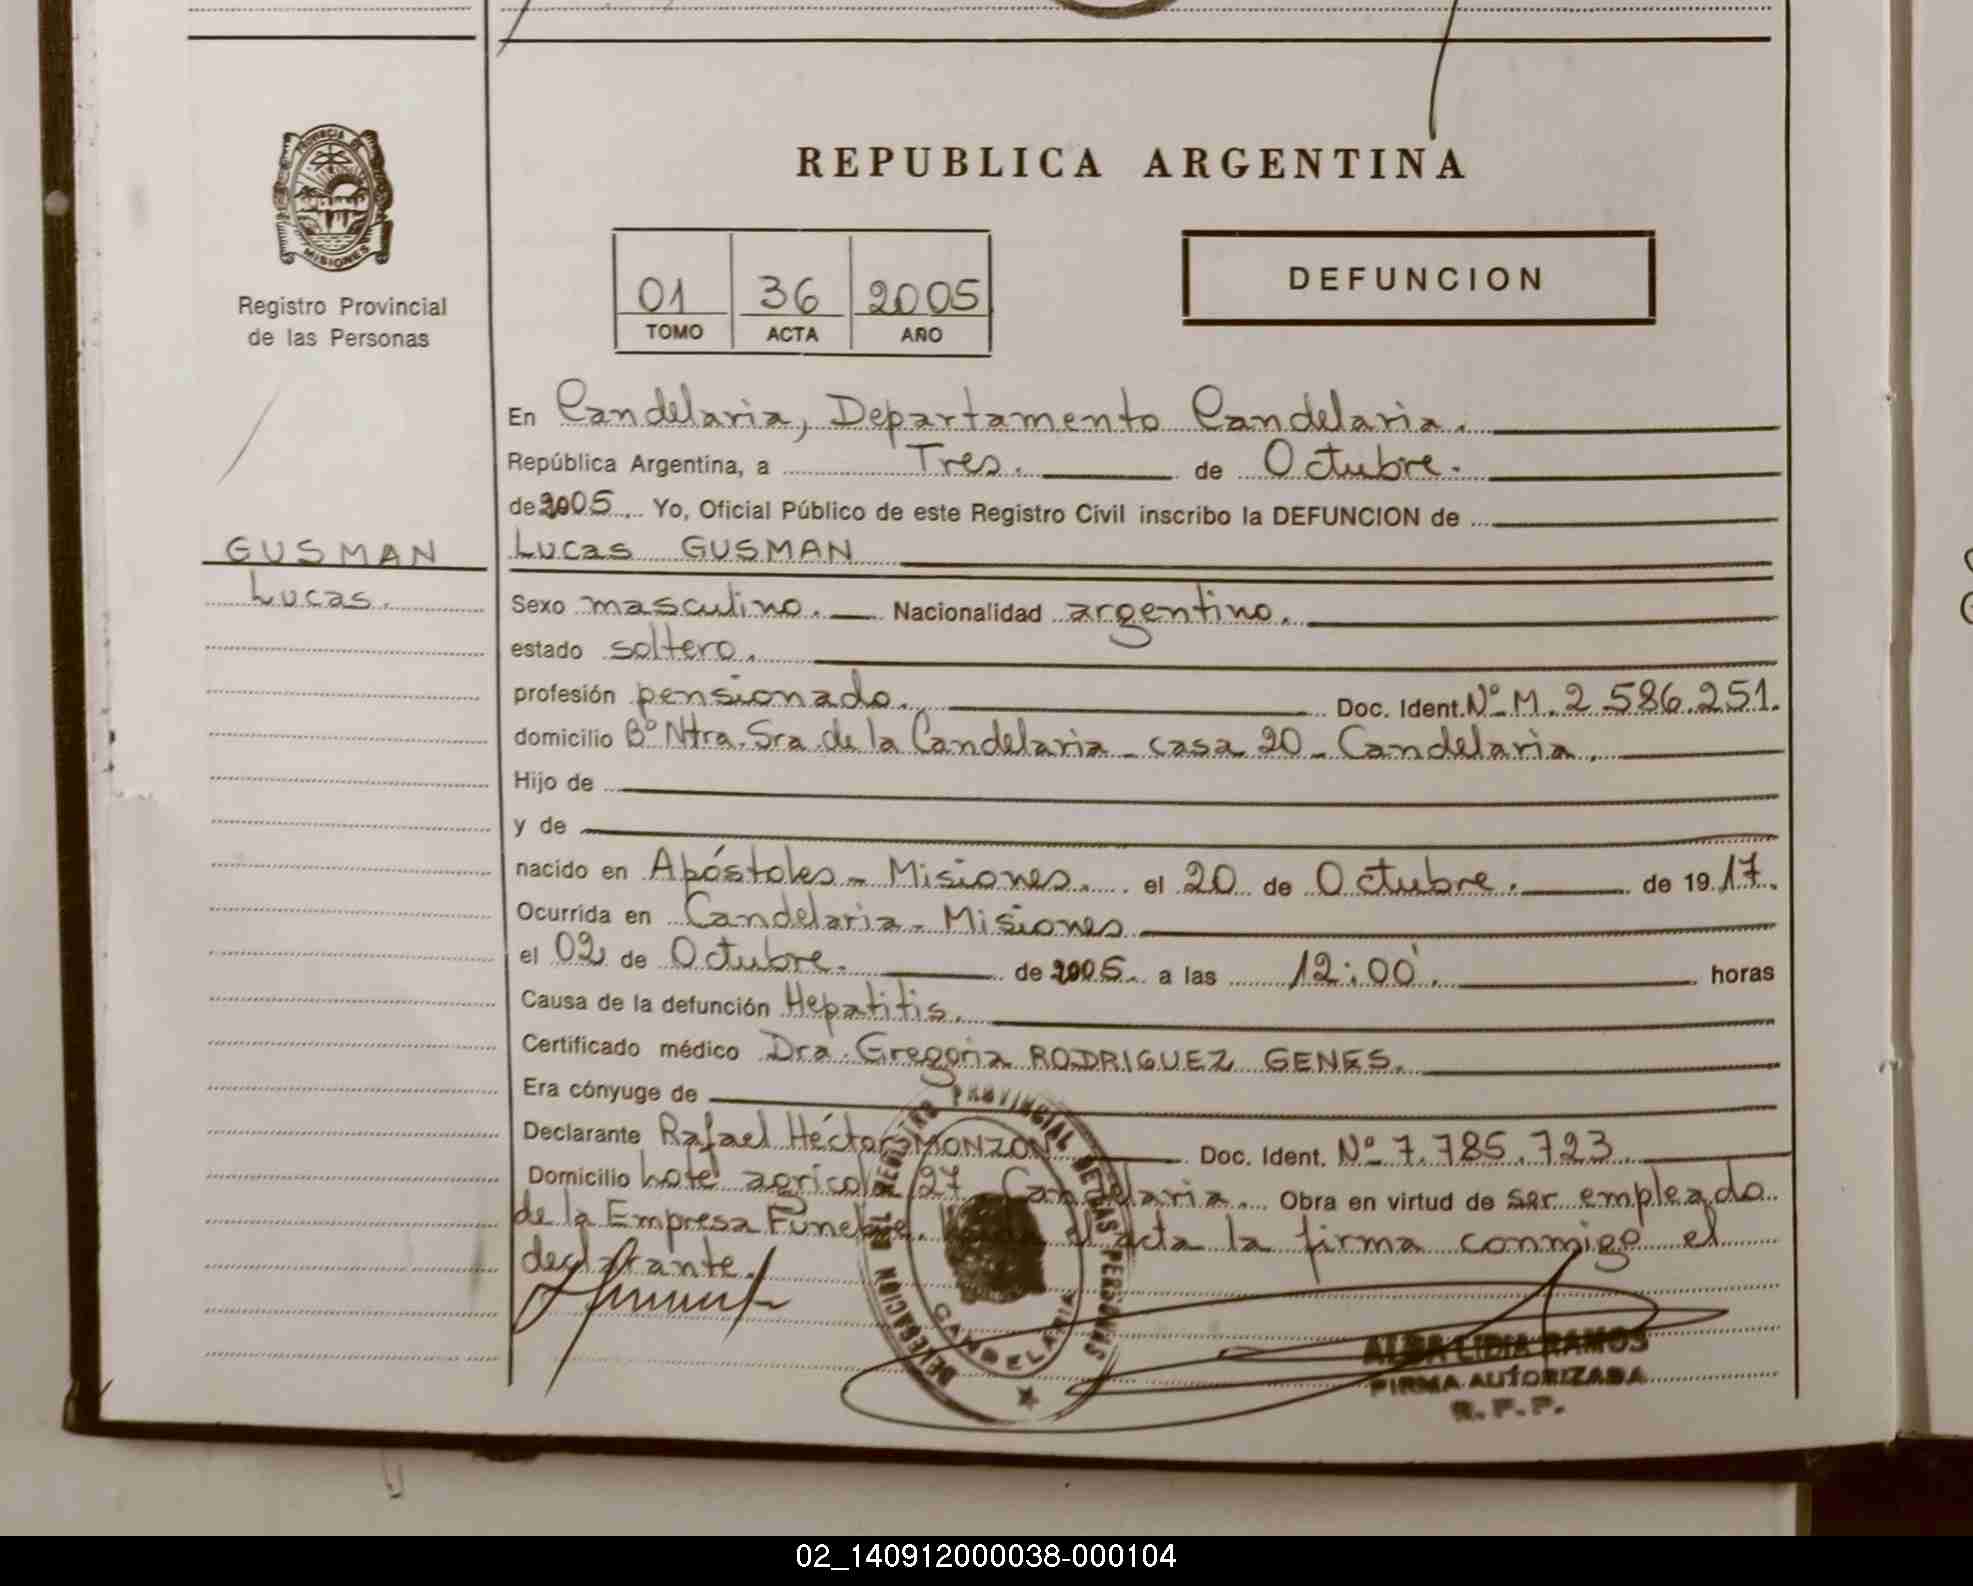 PROVINCIA DE
MISIONES
Registro Provincial
de las Personas
GUSMAN
Lucas.
REPUBLICA ARGENTINA
01 36 2005
TOMO ACTA AÑO
DEFUNCION
En Candelaria, Departamento Candelaria.
República Argentina, a Tres. de Octubre.
de 2005. Yo, Oficial Público de este Registro Civil inscribo la DEFUNCION de
Lucas GUSMAN
Sexo masculino. Nacionalidad argentino.
estado soltero.
profesión pensionado. Doc. Ident. Nº M. 2.586.251.
domicilio Bº Ntra. Sra. de la Candelaria - casa 20 - Candelaria.
Hijo de
y de
nacido en Apóstoles - Misiones. el 20 de Octubre. de 19 17.
Ocurrida en Candelaria - Misiones
el 02 de Octubre. de 2005. a las 12:00'. horas
Causa de la defunción Hepatitis.
Certificado médico Dra. Gregoria RODRIGUEZ GENES.
Era cónyuge de
Declarante Rafael Héctor MONZON Doc. Ident. Nº 7.785.723
Domicilio Lote agrícola 27 Candelaria. Obra en virtud de ser empleado
de la Empresa Fúnebre. el acta la firma conmigo el
declarante.
DELEGACION DEL REGISTRO PROVINCIAL DE LAS PERSONAS
CANDELARIA
ALBA LIDIA RAMOS
FIRMA AUTORIZADA
R. P. P.
02_140912000038-000104